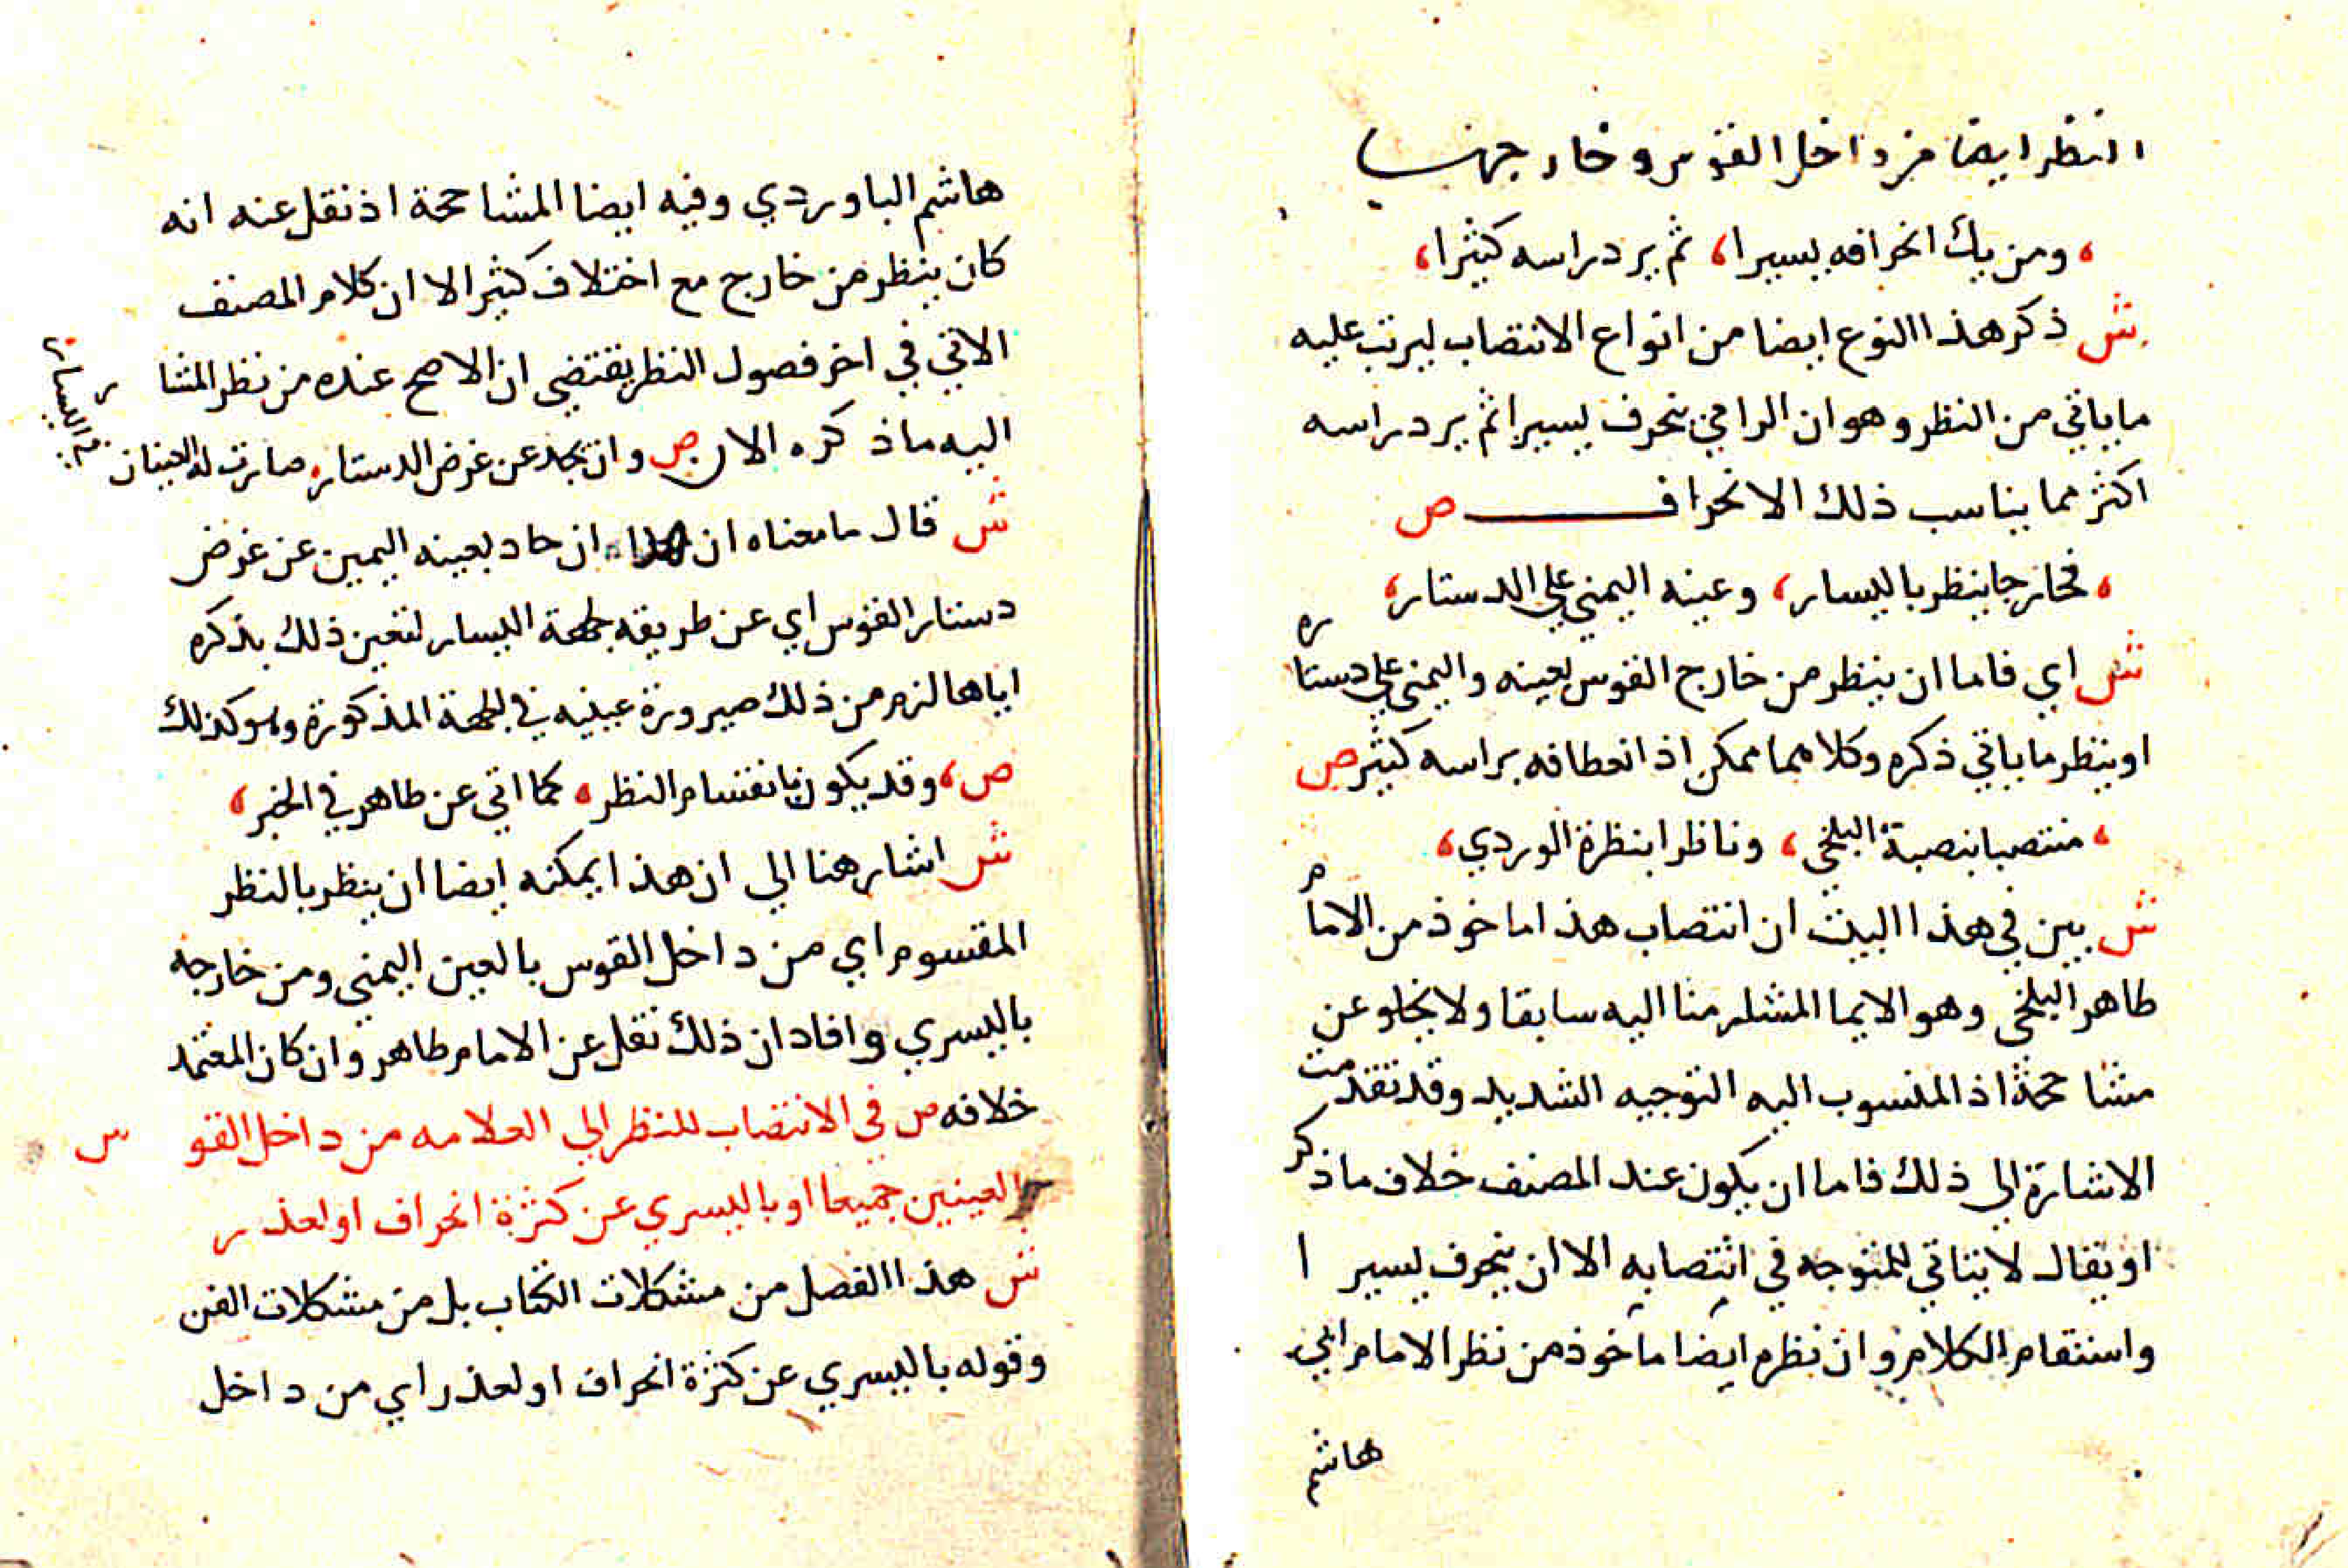 النظر ايضا من داخل القوس وخارجها
، ومن يك انحرافه يسيرا، ثم يرد راسه كثيرا،
ش ذكر هذا النوع ايضا من انواع الانتصاب ليرتب عليه
ما ياتي من النظر وهو ان الرامي ينحرف يسيرا ثم يرد راسه
اكثر مما يناسب ذلك الانحراف ص
، فخارجا ينظر باليسار، وعينه اليمني علي الدستار،
ش اي فاما ان ينظر من خارج القوس بعينه واليمني علي دستاره
او ينظر ما ياتي ذكره وكلاهما ممكن اذ انعطافه براسه كثير ص
، منتصبا بنصبة البلخي، وناظرا بنظرة الوردي،
ش بين في هذا البيت ان انتصاب هذا ماخوذ من الامام
طاهر البلخي وهو الايما المشار منا اليه سابقا ولا يخلو عن
مشاححة اذ المنسوب اليه التوجيه الشديد وقد تقدمت
الاشارة الي ذلك فاما ان يكون عند المصنف خلاف ما ذكر
او يقال لا يتاتي للمتوجه في انتصابه الا ان ينحرف يسيرا
واستقام الكلام وان نظره ايضا ماخوذ من نظر الامام ابي
هاشم
هاشم الباوردي وفيه ايضا المشاححة اذ نقل عنه انه
كان ينظر من خارج مع اختلاف كثير الا ان كلام المصنف
الاتي في اخر فصول النظر يقتضي ان الاصح عنده من نظر المشار
اليه ما ذكره الان ص وان يحد عن غرض الدستار، صارت له العينان
في اليسار،
ش قال ما معناه ان ان حاد بعينه اليمين عن غرض
دستار القوس اي عن طريقه لجهة اليسار لتعين ذلك بذكره
اياها لزم من ذلك صيرورة عينيه في الجهة المذكورة وهو كذلك
ص، وقد يكون بانقسام النظر، كما اتي عن طاهر في الخبر،
ش اشار هنا الي ان هذا يمكنه ايضا ان ينظر بالنظر
المقسوم اي من داخل القوس بالعين اليمني ومن خارجه
باليسري وافاد ان ذلك نقل عن الامام طاهر وان كان المعتمد
خلافه ص في الانتصاب للنظر الي العلامه من داخل القوس
بالعينين جميعا او باليسري عن كثرة انحراف او لعذر
ش هذا الفصل من مشكلات الكتاب بل من مشكلات الفن
وقوله باليسري عن كثرة انحراف او لعذر اي من داخل